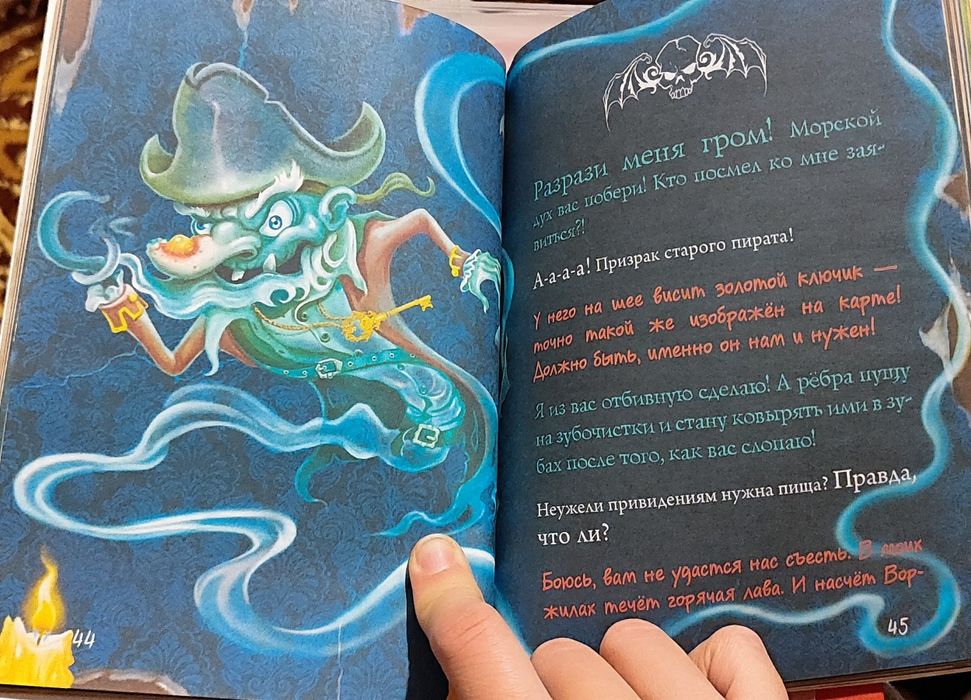 44
Разрази меня гром! Морской
дух вас побери! Кто посмел ко мне зая-
виться?!
А-а-а-а! Призрак старого пирата!
У него на шее висит золотой ключик —
точно такой же изображён на карте!
Должно быть, именно он нам и нужен!
Я из вас отбивную сделаю! А рёбра пущу
на зубочистки и стану ковырять ими в зу-
бах после того, как вас слопаю!
Неужели привидениям нужна пища? Правда,
что ли?
Боюсь, вам не удастся нас съесть. В моих
жилах течёт горячая лава. И насчёт Вор-
45